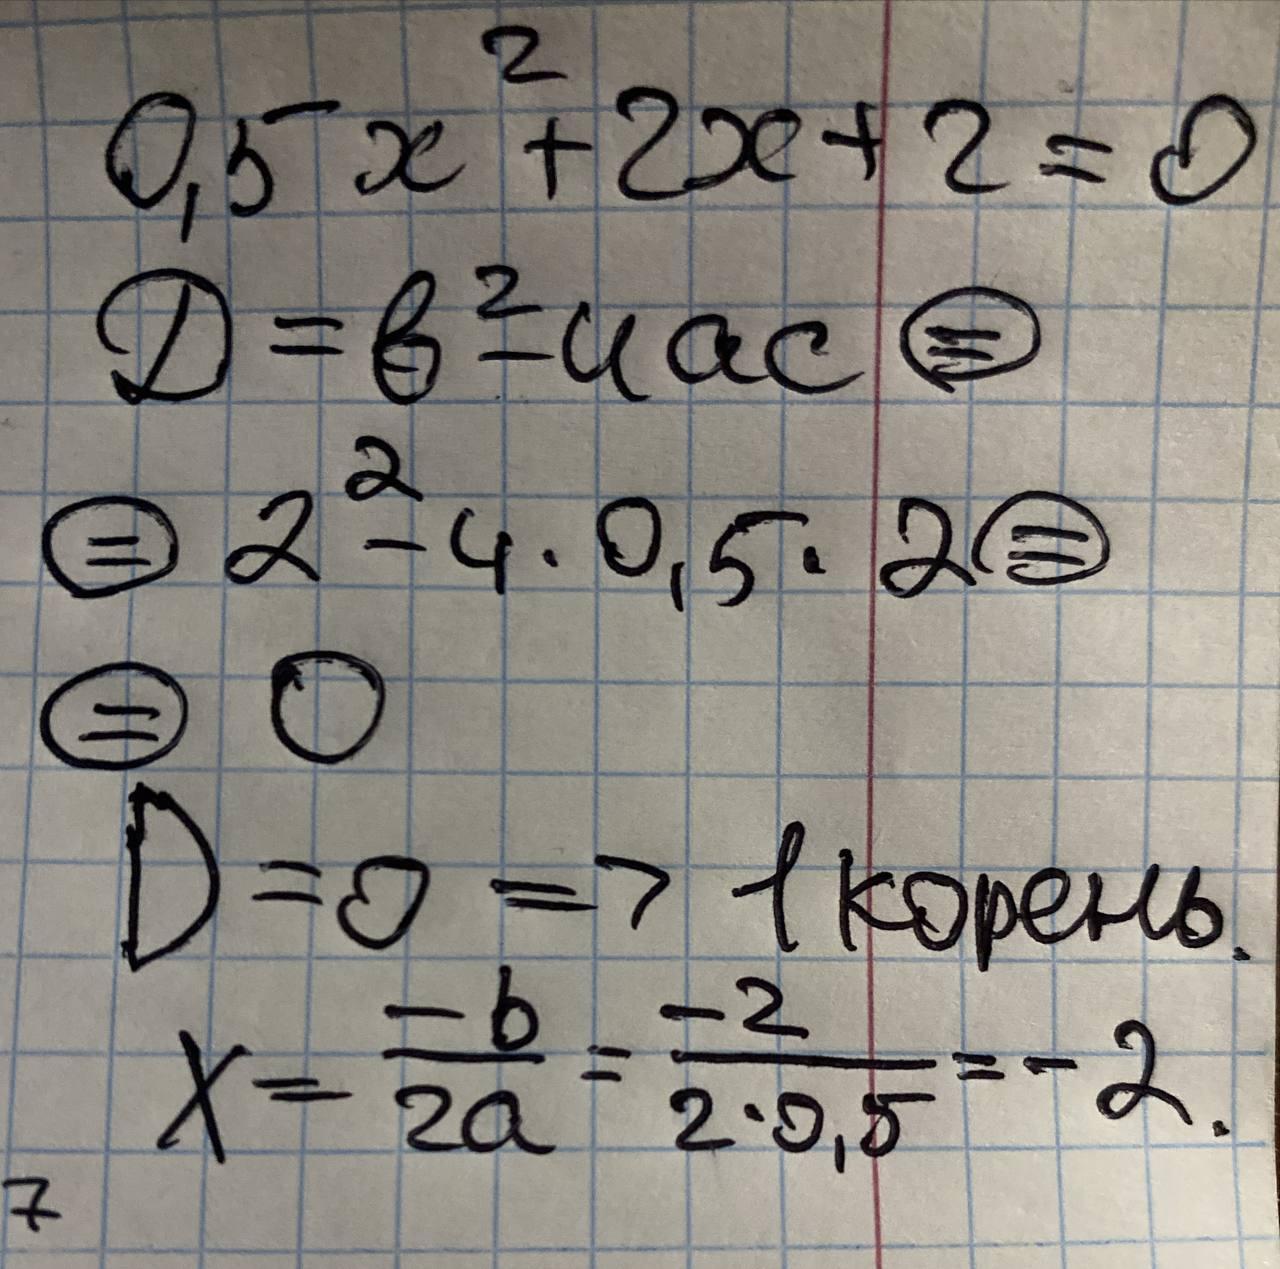 0,5x²+2x+2=0
D=в²-4ac⊜
⊜2²-4·0,5·2⊜
⊜0
D=0=>1корень.
x=-b/2a=-2/2·0,5=-2.
7